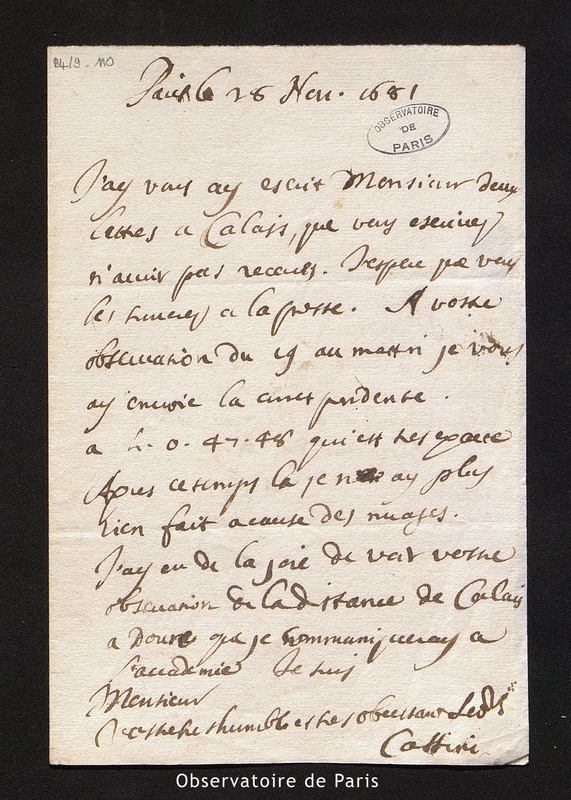 B4/9 - 110
Paris le 28 Nov. 1681
OBSERVATOIRE
DE
PARIS
J'ay vous ay escrit Monsieur deux
lettres a Calais, que vous escrivez
n'avoir pas receues. J'espere que vous
les trouverez a la poste. A vostre
observation du 19 au matin je vous
ay envoié la correspondente.
a h. 0. 47. 48 qui est tres exacte
Apres ce temps la je n ay plus
rien fait a cause des nuages.
J'ay eu de la joie de voir vostre
observation de la distance de Calais
a Douvre que je communiqueray a
l'accademie Je suis
Monsieur
Vostre tres humble et tres obeissant
Cassini
Observatoire de Paris